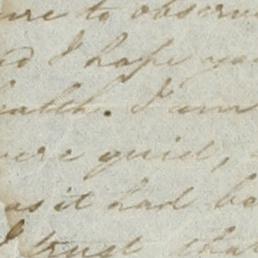 ure to observ
d I hope you
ealth. I am
were quiet,
as it had be
I trust that